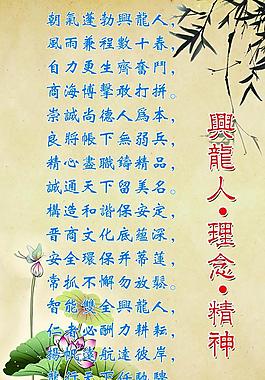 興龍人·理念·精神
朝氣蓬勃興龍人，
風雨兼程數十春，
自力更生齊奮鬥，
商海博擊敢打拼。
崇誠尚德人為本，
良將帳下無弱兵，
精心盡職鑄精品，
誠通天下留美名。
構造和諧保安定，
晉商文化底蘊深，
安全環保并蒂蓮，
常抓不懈勿放鬆。
智能雙全興龍人，
仁者必酬力耕耘，
揚帆遠航達彼岸，
龍行天下任馳騁